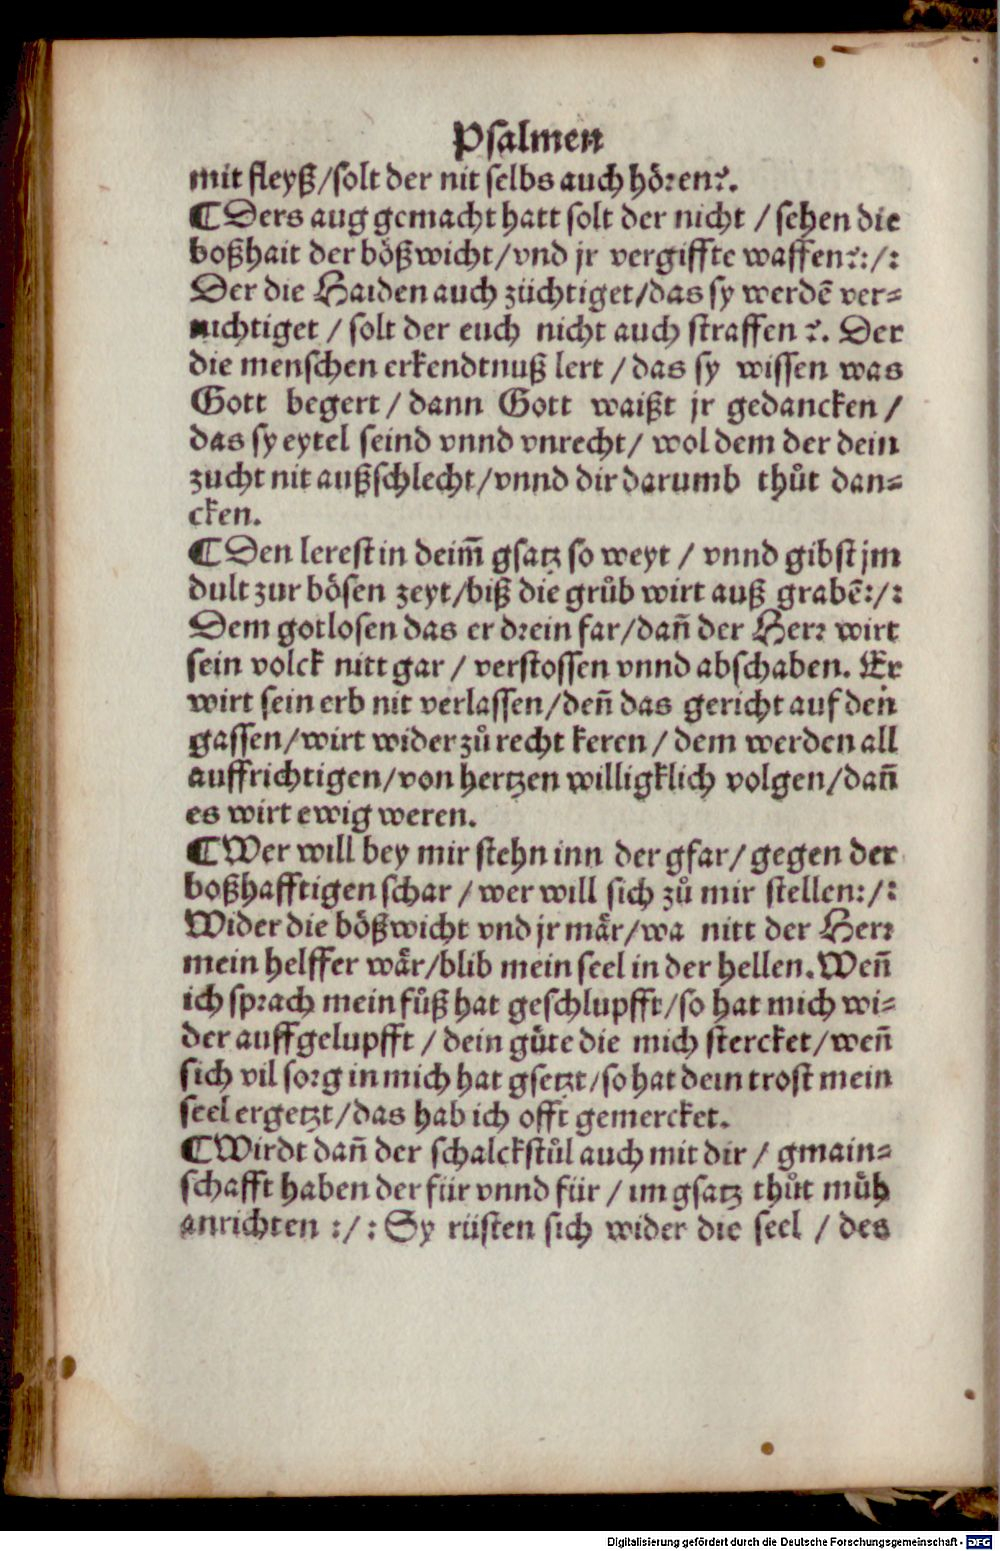 Psalmen
mit fleyß/solt der nit selbs auch hören?.
¶Ders aug gemacht hatt solt der nicht / sehen die
boßhait der bößwicht/vnd jr vergiffte waffen?:/:
Der die Haiden auch züchtiget/das sy werdē ver-
nichtiget / solt der euch nicht auch straffen ?. Der
die menschen erkendtnuß lert / das sy wissen was
Gott begert / dann Gott waißt jr gedancken /
das sy eytel seind vnnd vnrecht/ wol dem der dein
zucht nit außschlecht/vnnd dir darumb thůt dan-
cken.
¶Den lerest in deim̄ gsatz so weyt / vnnd gibst jm
dult zur bösen zeyt/biß die grůb wirt auß grabē:/:
Dem gotlosen das er drein far/dañ der Herr wirt
sein volck nitt gar / verstossen vnnd abschaben. Er
wirt sein erb nit verlassen/deñ das gericht auf den
gassen/wirt wider zů recht keren / dem werden all
auffrichtigen/von hertzen willigklich volgen/dañ
es wirt ewig weren.
¶Wer will bey mir stehn inn der gfar/gegen der
boßhafftigen schar / wer will sich zů mir stellen:/:
Wider die bößwicht vnd jr mär/wa nitt der Herr
mein helffer wär/blib mein seel in der hellen.Weñ
ich sprach mein fůß hat geschlupfft/so hat mich wi-
der auffgelupfft / dein güte die mich stercket/weñ
sich vil sorg in mich hat gsetzt/so hat dein trost mein
seel ergetzt/das hab ich offt gemercket.
¶Wirdt dañ der schalckstůl auch mit dir / gmain-
schafft haben der für vnnd für / im gsatz thůt müh
anrichten :/: Sy rüsten sich wider die seel / des
Digitalisierung gefördert durch die Deutsche Forschungsgemeinschaft - DFG